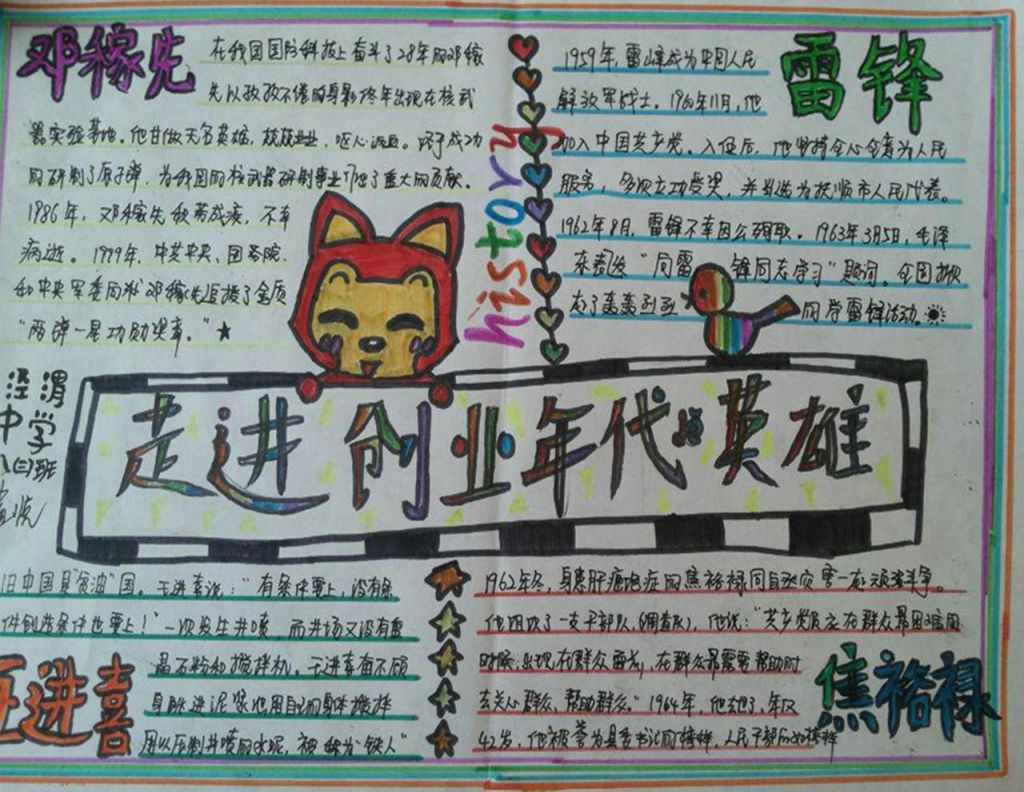 邓稼先
在我国国防科技上奋斗了28年的邓稼
先以孜孜不倦的身影终年出现在核武
器实验基地。他甘做无名英雄,兢兢业业,呕心沥血。终于成功
的研制了原子弹,为我国的核武器研制事业做了重大的贡献。
1986年,邓稼先积劳成疾,不幸
病逝。1999年,中共中央、国务院
和中央军委向邓稼先追授了金质
“两弹一星功勋奖章。”
history
雷锋
1959年,雷锋成为中国人民
解放军战士。1960年11月,他
加入中国共产党。入伍后,他坚持全心全意为人民
服务,多次立功受奖,并当选为抚顺市人民代表。
1962年8月,雷锋不幸因公殉职。1963年3月5日,毛泽
东表发“向雷锋同志学习”题词。全国掀
起了轰轰烈烈向学雷锋活动。
泾渭
中学
八(三)班
走进创业年代的英雄
王进喜
旧中国是“贫油”国。王进喜说:“有条件要上,没有条
件创造条件也要上!”一次发生井喷,而井场又没有重
晶石粉和搅拌机,王进喜奋不顾
身跃进泥浆池用自己的身体搅拌
用以压制井喷的水泥,被称为“铁人”
焦裕禄
1962年冬,身患肝癌的焦裕禄同自然灾害一起顽强斗争。
他组织了一支干部队(调查队),他说:“共产党员应在群众最困难的
时候,出现在群众面前,在群众最需要帮助时
去关心群众,帮助群众。”1964年,他去世了,年仅
42岁,他被誉为县委书记的榜样,人民干部的好榜样